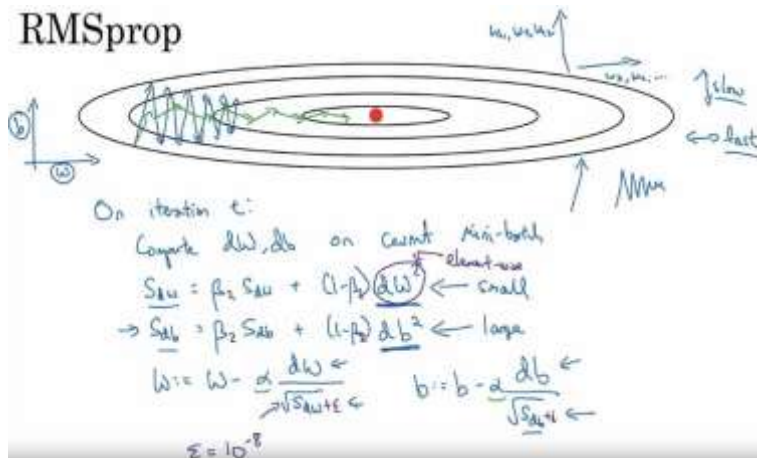 RMSprop
w₁, w₂, w₃
w₃, w₄, ...
↑ slow
↔ fast
b
w
On iteration t:
Compute dW, db on current mini-batch
element-wise
S_dw = β₂ S_dw + (1-β₂) dW² ← small
→ S_db = β₂ S_db + (1-β₂) db² ← large
W := W - α dW/(√S_dw + ε) ← b := b - α db/(√S_db + ε) ←
ε = 10⁻⁸